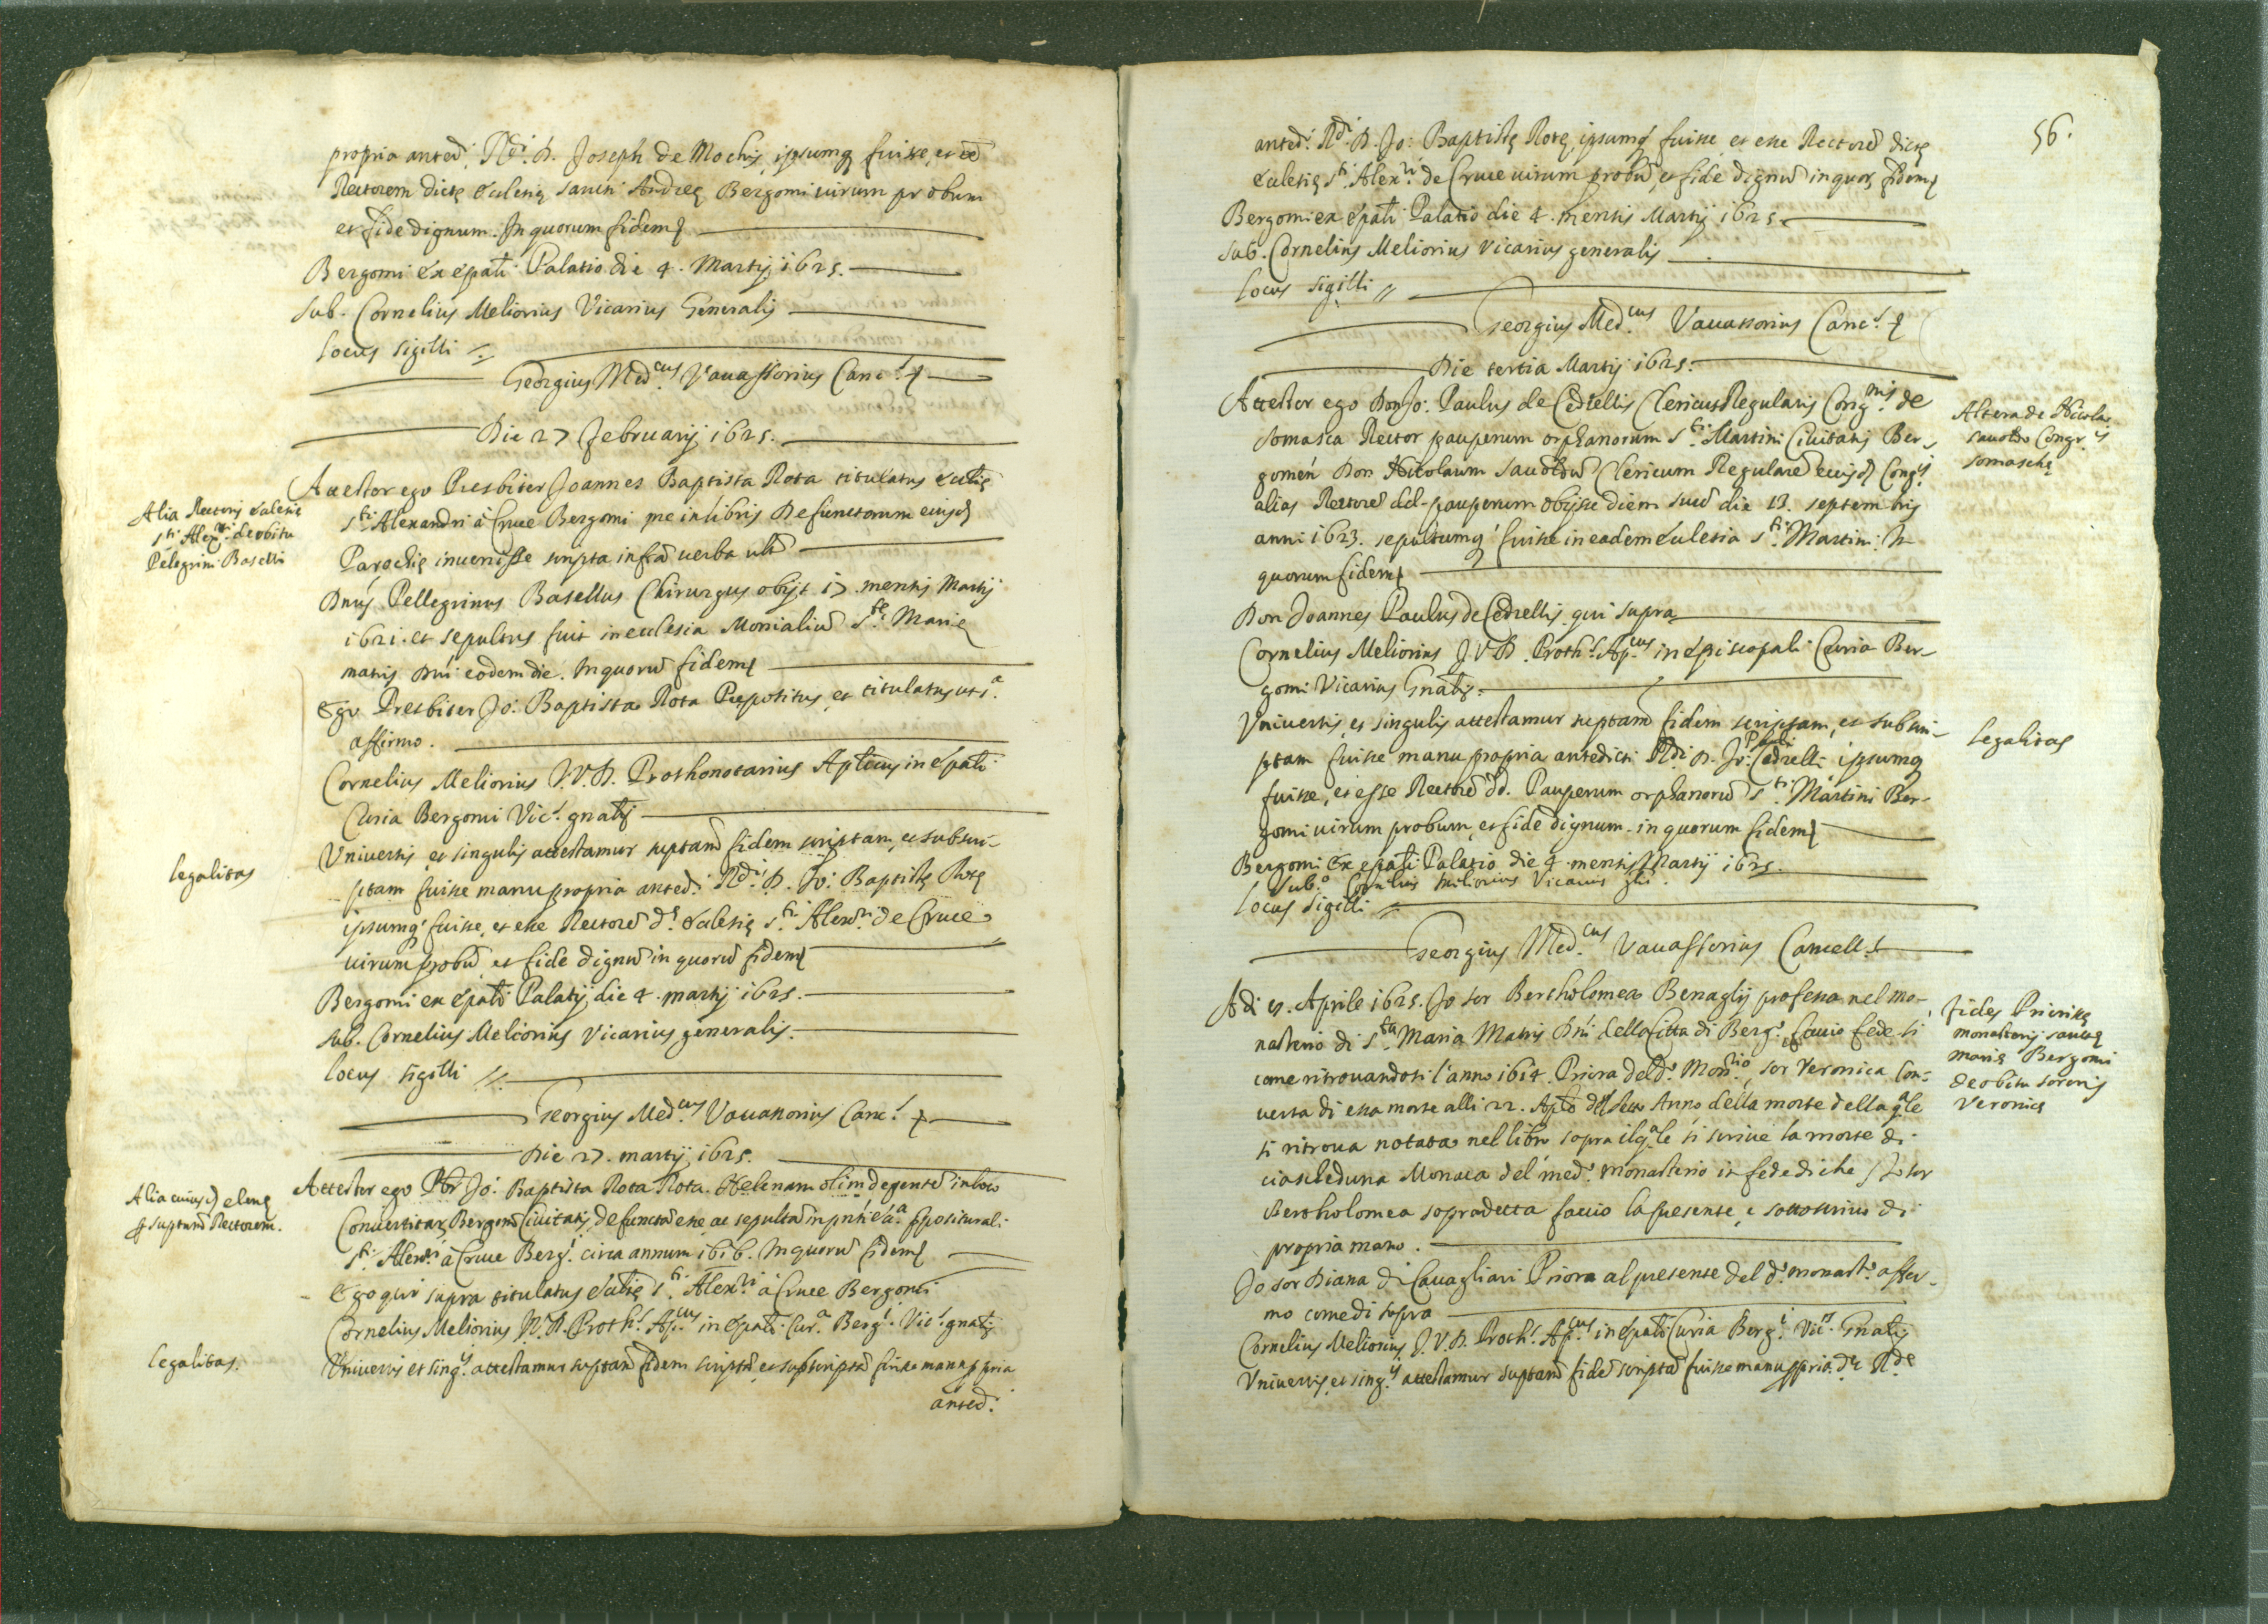 propria anted.i R.di D. Joseph de Mochis, ipsumq fuisse, et eē
Rectorem dictę ecclesię sancti Andreę Bergomi virum probum
et fide dignum. In quorum fidem
Bergomi ex ēpali Palatio die 4. Martij 1625.
Sub. Cornelius Meliorius Vicarius Generalis
Locus sigilli
Georgius Med.cus Vavassorius Canc.s
Die 27 februarij 1625.
Alia Rectoris ecclesię
s.ti Alex.ri de obitu
Pelegrini Baselli
Attestor ego Presbiter Joannes Baptista Rota titulatus eccłię
s.ti Alexandri à Cruce Bergomi me in libris Defunctorum eiusd
Parochię invenisse scripta infra verba
Dnus Pellegrinus Basellus Chirurgus obijt 17. mensis Martij
1621. et sepultus fuit in ecclesia Monialiū S.tę Marię
matris Dnī eodem die. In quorū fidem
Ego Presbiter Jo: Baptista Rota Prepositus, et titulatus ut s.a
affirmo.
Cornelius Meliorius J.V.D. Prothonotarius Aplicus in ēpali
Curia Bergomi Vic.s gnalis
Legalitas
Universis et singulis attestamur suptam fidem scriptam, et subscri-
ptam fuisse manu propria anted.i R.di D. Jo: Baptistę Rotę
ipsumq fuisse, et esse Rectorē d.ę ecclesię s.ti Alex.ri de Cruce
virum probū et fide dignū in quorū fidem
Bergomi ex ēpali Palatij die 4. martij 1625.
Sub. Cornelius Meliorius Vicarius generalis.
Locus sigilli
Georgius Med.cus Vavassorius Canc.s
Die 27. martij 1625.
Alia eiusd elenę
suptum Rectorem.
Attestor ego Pbr Jo: Baptista Rota Rota. Helenam olim degentē in loco
Convertitar Bergom Civitatis, defunctā esse, ac sepultā in pnti ecc.a ppositurali
s.ti Alex.ri à Cruce Berg.i circa annum 1616. In quorū fidem
Ego qui supra titulatus eccłię s.ti Alex.ri à Cruce Bergomi
Cornelius Meliorius J.V.D. Proth.s Ap.cus in ēpali Cur.a Berg.i Vic.s gnalis
Legalitas.
Universis et sing.is attestamur suptam fidem scriptā, et subscriptā fuisse manu ppria
anted.i
56.
anted.i R.di D. Jo: Baptistę Rotę, ipsumq fuisse et esse Rectorē dictę
ecclesię s.ti Alex.ri de Cruce virum probū, et fide dignū in quor. fidem
Bergomi ex ēpali Palatio die 4. mensis Martij 1625.
Sub. Cornelius Meliorius Vicarius generalis
Locus sigilli
Georgius Med.cus Vavassorius Canc.s
Die tertia Martij 1625.
Altera de Nicolao
Savoldo Congr.is
somaschę
Attestor ego Don Jo: Paulus de Cedrellis Clericus Regularis Cong.nis de
Somasca Rector pauperum orphanorum s.ti Martini Civitatis Ber-
gomen Don Nicolaum Savoldū Clericum Regularē eiusd Cong.is
alias Rectorē dd. pauperum obijsse diem suū die 13. septembris
anni 1623. sepultumq fuisse in eadem ecclesia s.ti Martini. In
quorum fidem
Don Joannes Paulus de Cedrellis qui supra
Cornelius Meliorius J.V.D. Proth.s Ap.cus in episcopali Curia Ber-
gomi Vicarius Gnalis.
Legalitas
Universis, et singulis attestamur suptam fidem scriptam, et subscri-
ptam fuisse manu propria antedicti R.di D. Jo: Pauli Cedrelli ipsumq
fuisse, et esse Rectorē dd. Pauperum orphanorū s.ti Martini Ber-
gomi virum probum, et fide dignum. in quorum fidem
Bergomi ex ēpali Palatio die 4. mensis Martij 1625.
Sub.o Cornelius Meliorius Vicarius gńlis.
Locus sigilli
Georgius Med.cus Vavassorius Cancell.s
fides Priorissę
monasterij sanctę
marię Bergomi
de obitu sororis
Veronicę
Adi Aprile 1625. Jo sor Bertholomea Benaglij professa nel mo-
nasterio di s.ta Maria Matris Dnī della Città di Berg.o faccio fede si
come ritrovandosi l'anno 1614. Priora del d.o Mon.rio, sor Veronica Con-
versa di essa morse alli 22. Aple del detto Anno della morte della q.ale
si ritrova notata nel libro sopra il q.ale si scrive la morte di
ciascheduna Monaca del med.o monasterio in fede di che Jo sor
Bertholomea sopradetta faccio la presente, e sottoscrivo di
propria mano.
Jo sor Diana di Cavagliari Priora al presente del d.o monast.o affer-
mo come di sopra
Cornelius Meliorius J.V.D. Proth.s Ap.cus in ēpali Curia Berg.i Vic.s Gnalis
Universis, et sing.is attestamur suptam fidē scriptā fuisse manu ppria d.ę R.dę